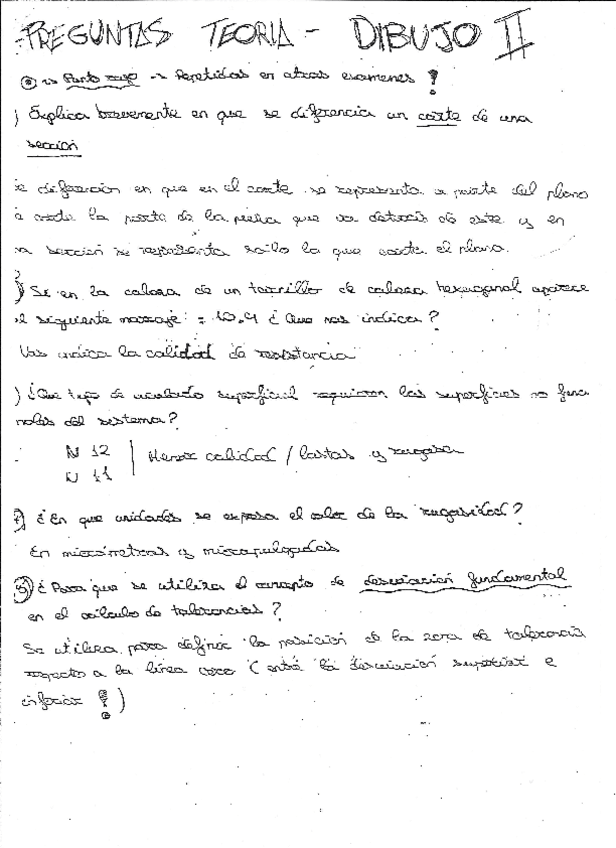 PREGUNTAS TEORIA - DIBUJO II
⊙ → Punto rojo → Repetidas en otros examenes!
) Explica brevemente en que se diferencia un corte de una
sección
se diferencian en que en el corte se representa a parte del plano
de corte la parte de la pieza que va detrás de este y en
la sección se representa solo lo que corta el plano.
) Si en la cabeza de un tornillo de cabeza hexagonal aparece
el siguiente mensaje: = 10.9 ¿Que nos indica?
Nos indica la calidad de resistencia
) ¿Que tipo de acabado superficial requieren las superficies no funcio
nales del sistema?
N 12
N 11 | Menor calidad / bastas y rugosa
4) ¿En que unidades se expresa el valor de la rugosidad?
En micrómetros y micropulgadas
5) ¿Para que se utiliza el concepto de desviación fundamental
en el cálculo de tolerancias?
Se utiliza para definir la posición de la zona de tolerancia
respecto a la línea cero (entre la desviación superior e
inferior ?)